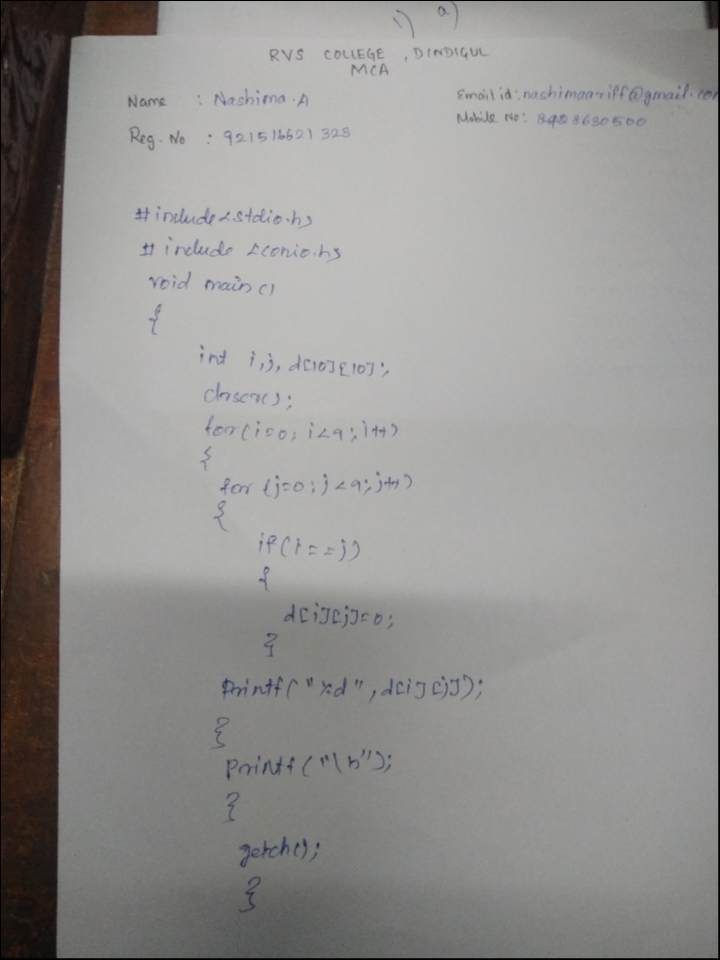 1) a)
RVS COLLEGE , DINDIGUL
MCA
Name : Nashima.A
Email id : nashimaariff@gmail.com
Reg. No : 921516621323
Mobile No : 8428630500
#include<stdio.h>
#include <conio.h>
void main()
{
int i,j, d[10][10];
clrscr();
for(i=0; i<9; i++)
{
for (j=0; j<9; j++)
{
if(i==j)
{
d[i][j]=0;
}
printf("%d", d[i][j]);
}
printf("\n");
}
getch();
}